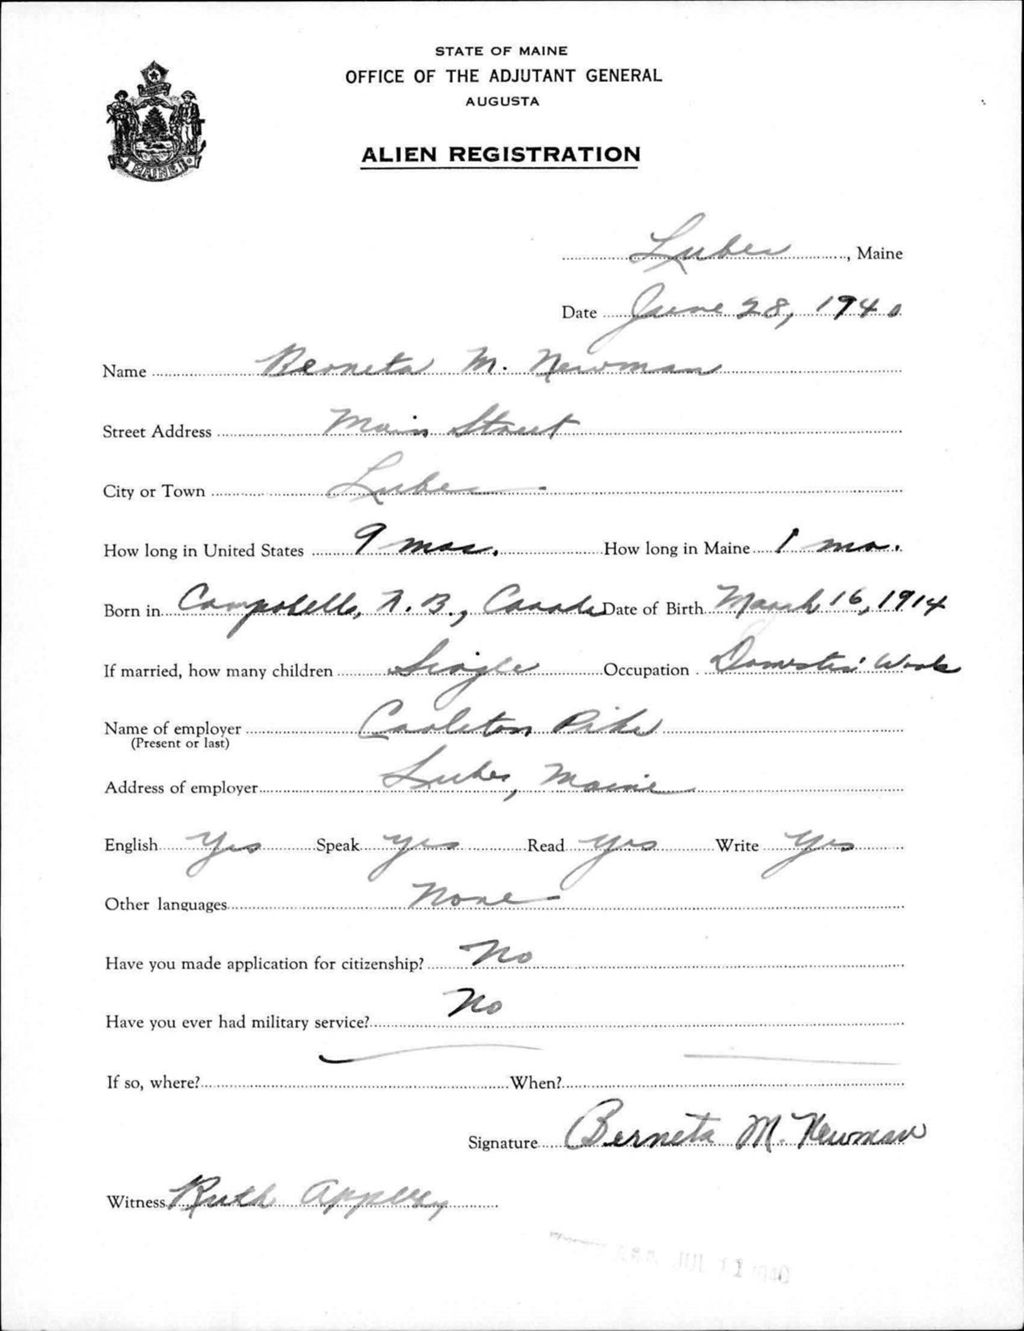 STATE OF MAINE
OFFICE OF THE ADJUTANT GENERAL
AUGUSTA
ALIEN REGISTRATION
MAINE
Lubec, Maine
Date June 28, 1940
Name Berneta M. Newman
Street Address Main Street
City or Town Lubec
How long in United States 9 mos. How long in Maine 1 mo.
Born in Campobello, N.B., Canada Date of Birth March 16, 1914
If married, how many children Single Occupation Domestic Work
Name of employer Carleton Pike
(Present or last)
Address of employer Lubec, Maine
English Yes Speak yes Read yes Write Yes
Other languages None
Have you made application for citizenship? No
Have you ever had military service? No
If so, where? When?
Signature Berneta M. Newman
Witness Ruth Appleby